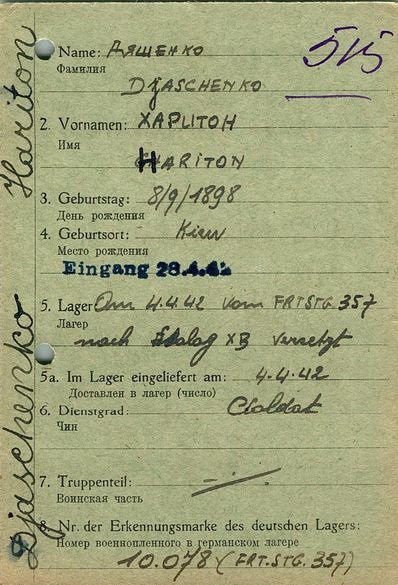 Hariton
Djaschenko
515
1. Name: Дяшенко
Фамилия
Djaschenko
2. Vornamen: Харитон
Имя
Hariton
3. Geburtstag: 8/9/1898
День рождения
4. Geburtsort: Kiew
Место рождения
Eingang 28.4.42
5. Lager Am 4.4.42 vom FRTSTG. 357
Лагерь
nach Stalag XB versetzt
5a. Im Lager eingeliefert am: 4.4.42
Доставлен в лагер (число)
6. Dienstgrad: Soldat
Чин
7. Truppenteil: —
Воинская часть
8. Nr. der Erkennungsmarke des deutschen Lagers:
Номер военнопленного в германском лагере
10.078 (FRT.STG. 357)